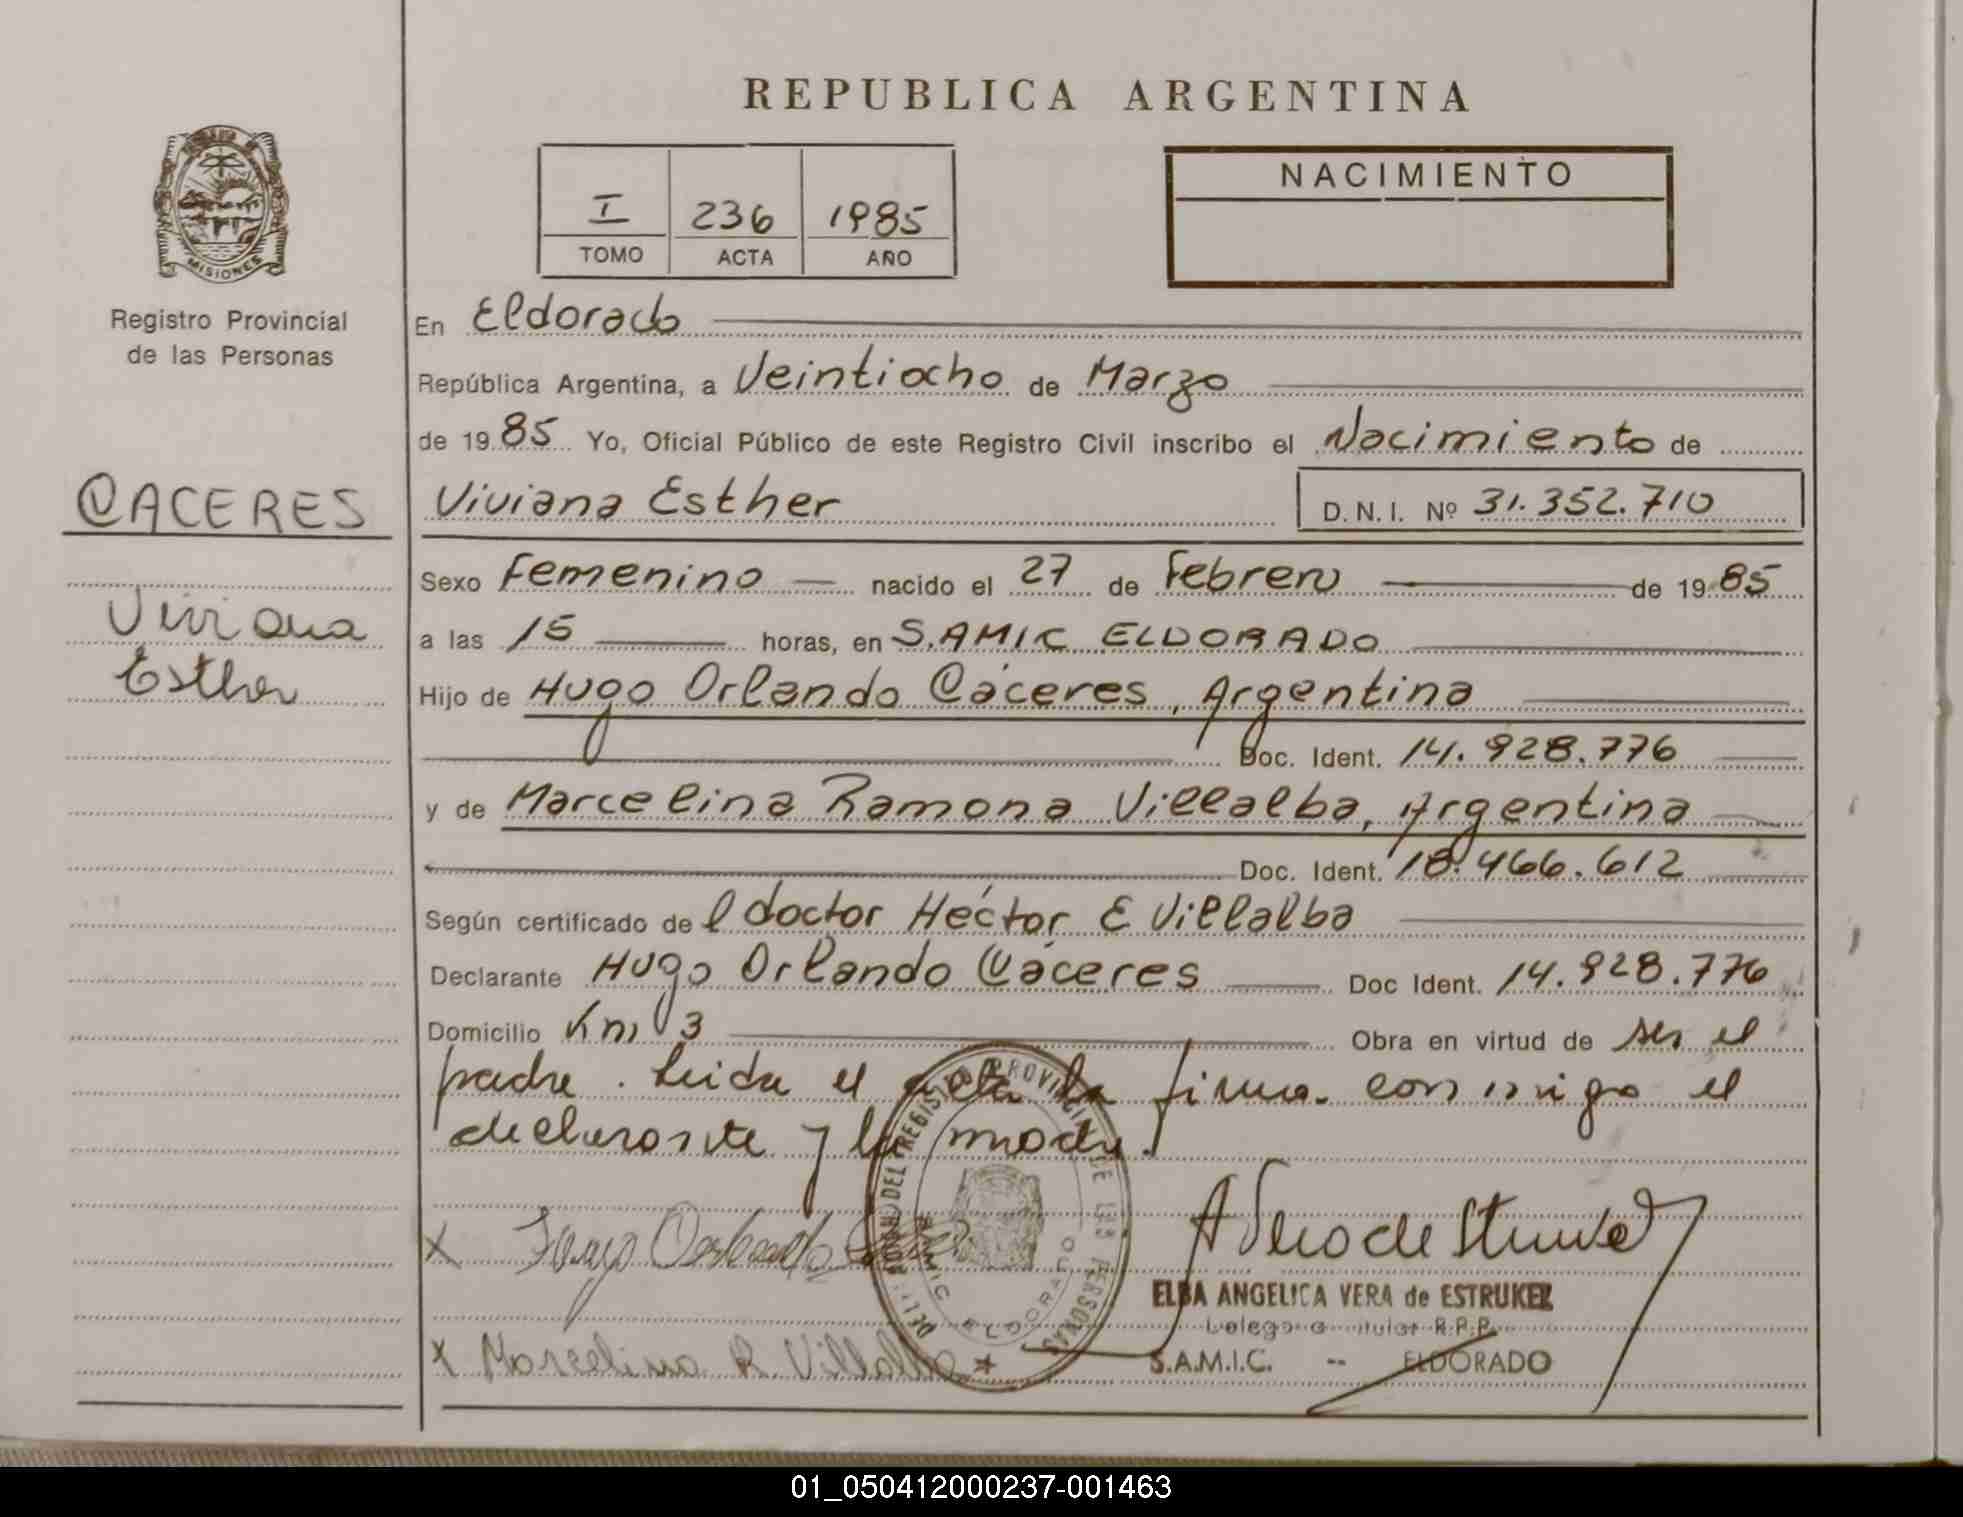 REPUBLICA ARGENTINA
MISIONES
Registro Provincial
de las Personas
CACERES
Viviana
Esther
I 236 1985
TOMO ACTA AÑO
NACIMIENTO
En Eldorado
República Argentina, a Veintiocho de Marzo
de 1985 Yo, Oficial Público de este Registro Civil inscribo el Nacimiento de
Viviana Esther D.N.I. Nº 31.352.710
Sexo Femenino nacido el 27 de Febrero de 1985
a las 15 horas, en S.AMIC ELDORADO
Hijo de Hugo Orlando Cáceres, Argentina
Doc. Ident. 14.928.776
y de Marcelina Ramona Villalba, Argentina
Doc. Ident. 18.466.612
Según certificado de l doctor Héctor E Villalba
Declarante Hugo Orlando Cáceres Doc Ident. 14.928.776
Domicilio Km 3 Obra en virtud de ser el
padre. Leida el acta la firma conmigo el
declarante y la madre.
X Hugo Orlando
X Marcelina R Villalba
DEL REGISTRO PROVINCIAL DE LAS PERSONAS
SAMIC ELDORADO
ELBA ANGELICA VERA de ESTRUKEL
R.P.P.
S.A.M.I.C. -- ELDORADO
01_050412000237-001463